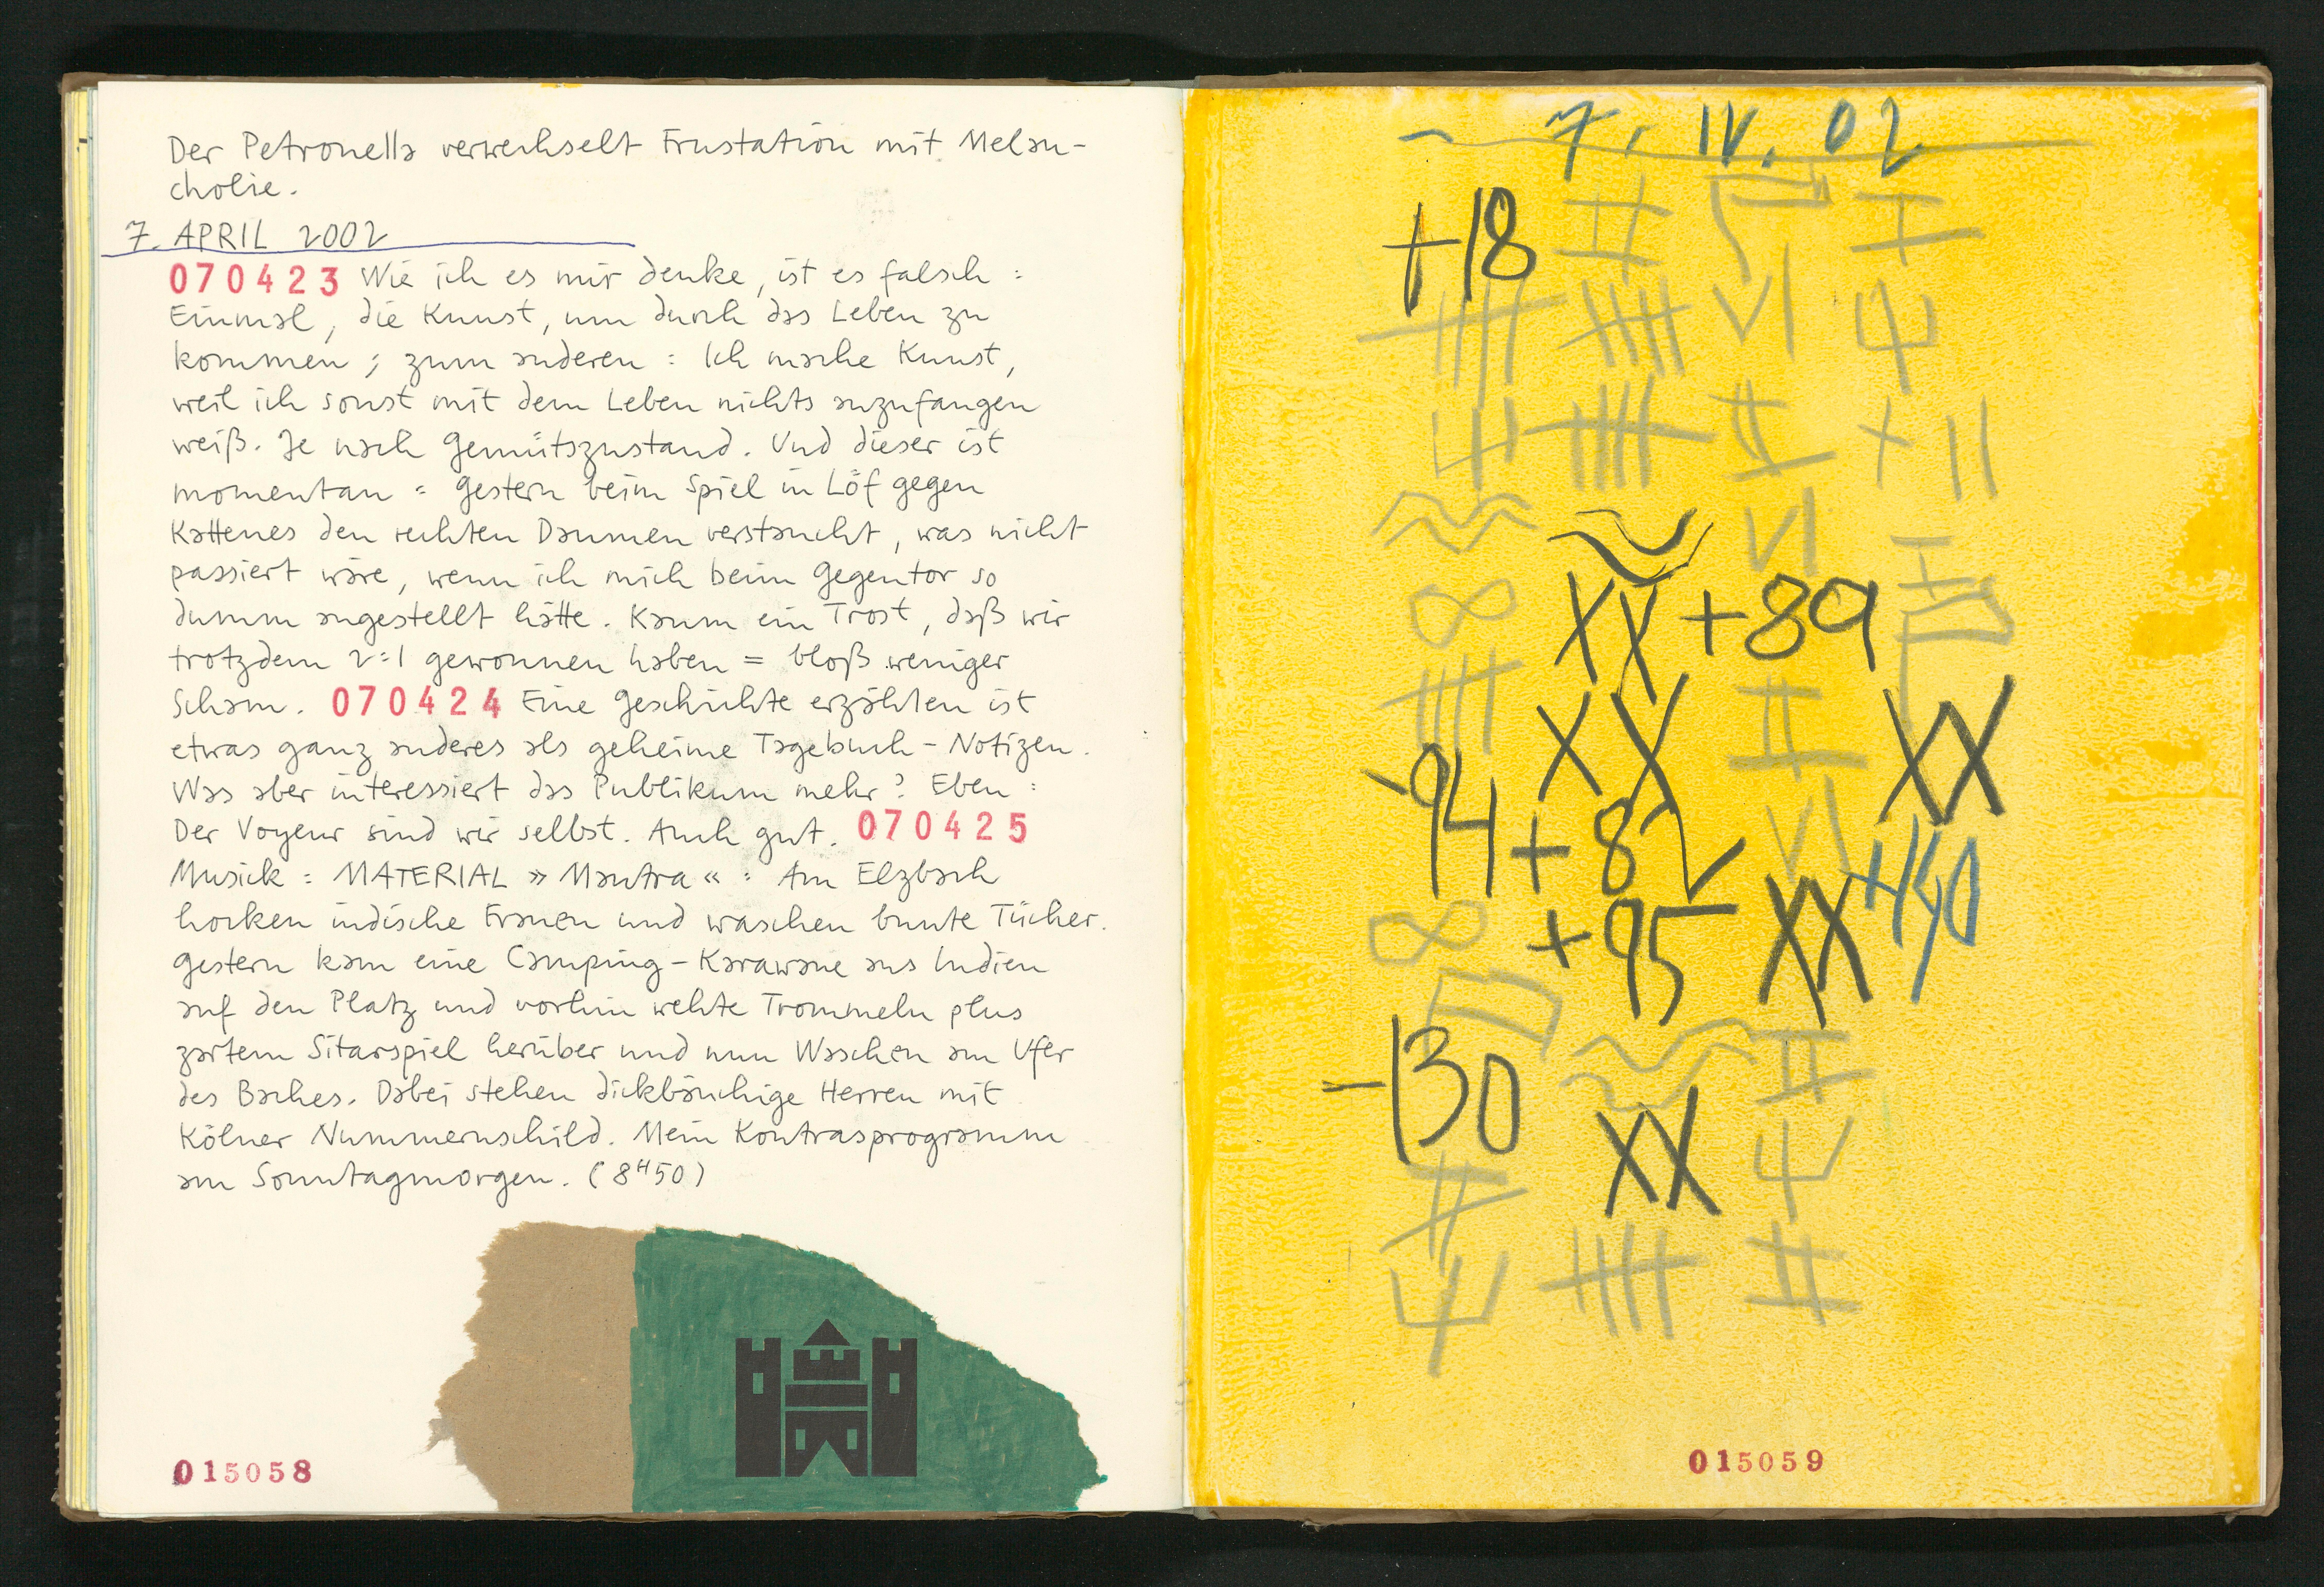 Der Petronella verwechselt Frustation mit Melan-
cholie.
7. APRIL 2002
070423 Wie ich es mir denke, ist es falsch :
Einmal, die Kunst, um durch das Leben zu
kommen ; zum anderen : Ich mache Kunst,
weil ich sonst mit dem Leben nichts anzufangen
weiß. Je nach Gemütszustand. Und dieser ist
momentan = Gestern beim Spiel in Löf gegen
Kattenes den rechten Daumen verstaucht, was nicht
passiert wäre, wenn ich mich beim Gegentor so
dumm angestellt hätte. Kaum ein Trost, daß wir
trotzdem 2:1 gewonnen haben = bloß weniger
Scham. 070424 Eine Geschichte erzählen ist
etwas ganz anderes als geheime Tagebuch-Notizen.
Was aber interessiert das Publikum mehr? Eben :
Der Voyeur sind wir selbst. Auch gut. 070425
Musick : MATERIAL »Mantra« : Am Elzbach
hocken indische Frauen und waschen bunte Tücher.
Gestern kam eine Camping-Karawane aus Indien
auf den Platz und vorhin wehte Trommeln plus
zartem Sitarspiel herüber und nun Waschen am Ufer
des Baches. Dabei stehen dickbäuchige Herren mit
Kölner Nummernschild. Mein Kontrasprogramm
am Sonntagmorgen. (8H50)
015058
~ 7. IV. 02
+18
VI
+ II
VI
∞ XX +89
XX XX
-94 +82 VI +150
∞ +95 XX
-130
XX
015059